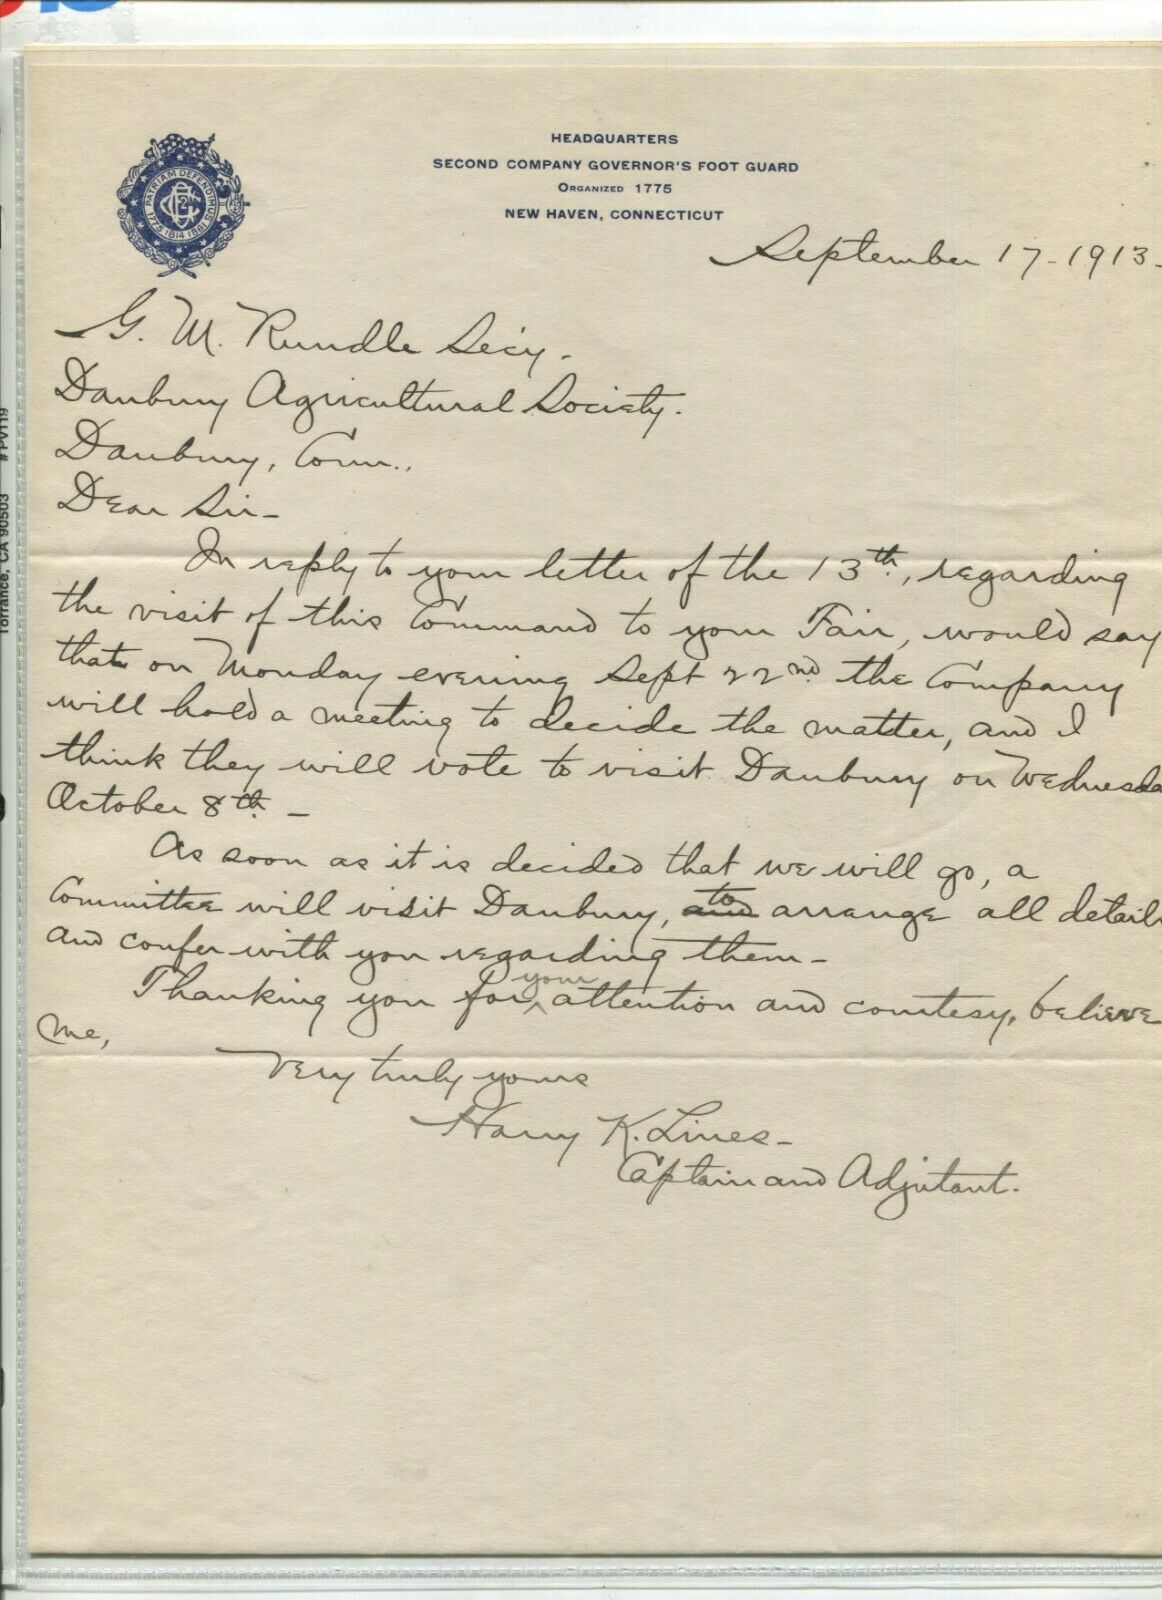 HEADQUARTERS
SECOND COMPANY GOVERNOR'S FOOT GUARD
ORGANIZED 1775
NEW HAVEN, CONNECTICUT
PATRIAM DEFENDIMUS
1775 1814 1861
September 17-1913-
G. M. Rundle Sec'y-
Danbury Agricultural Society.
Danbury, Conn.,
Dear Sir-
In reply to your letter of the 13th, regarding
the visit of this Command to your Fair, would say
that on Monday evening Sept 22nd the Company
will hold a meeting to decide the matter, and I
think they will vote to visit Danbury on Wednesda
October 8th-
As soon as it is decided that we will go, a
Committee will visit Danbury, and to arrange all detail
and confer with you regarding them-
Thanking you for your attention and courtesy, believe
me,
Very truly yours
Harry K. Lines-
Captain and Adjutant.
Torrance, CA 90503 #PV119